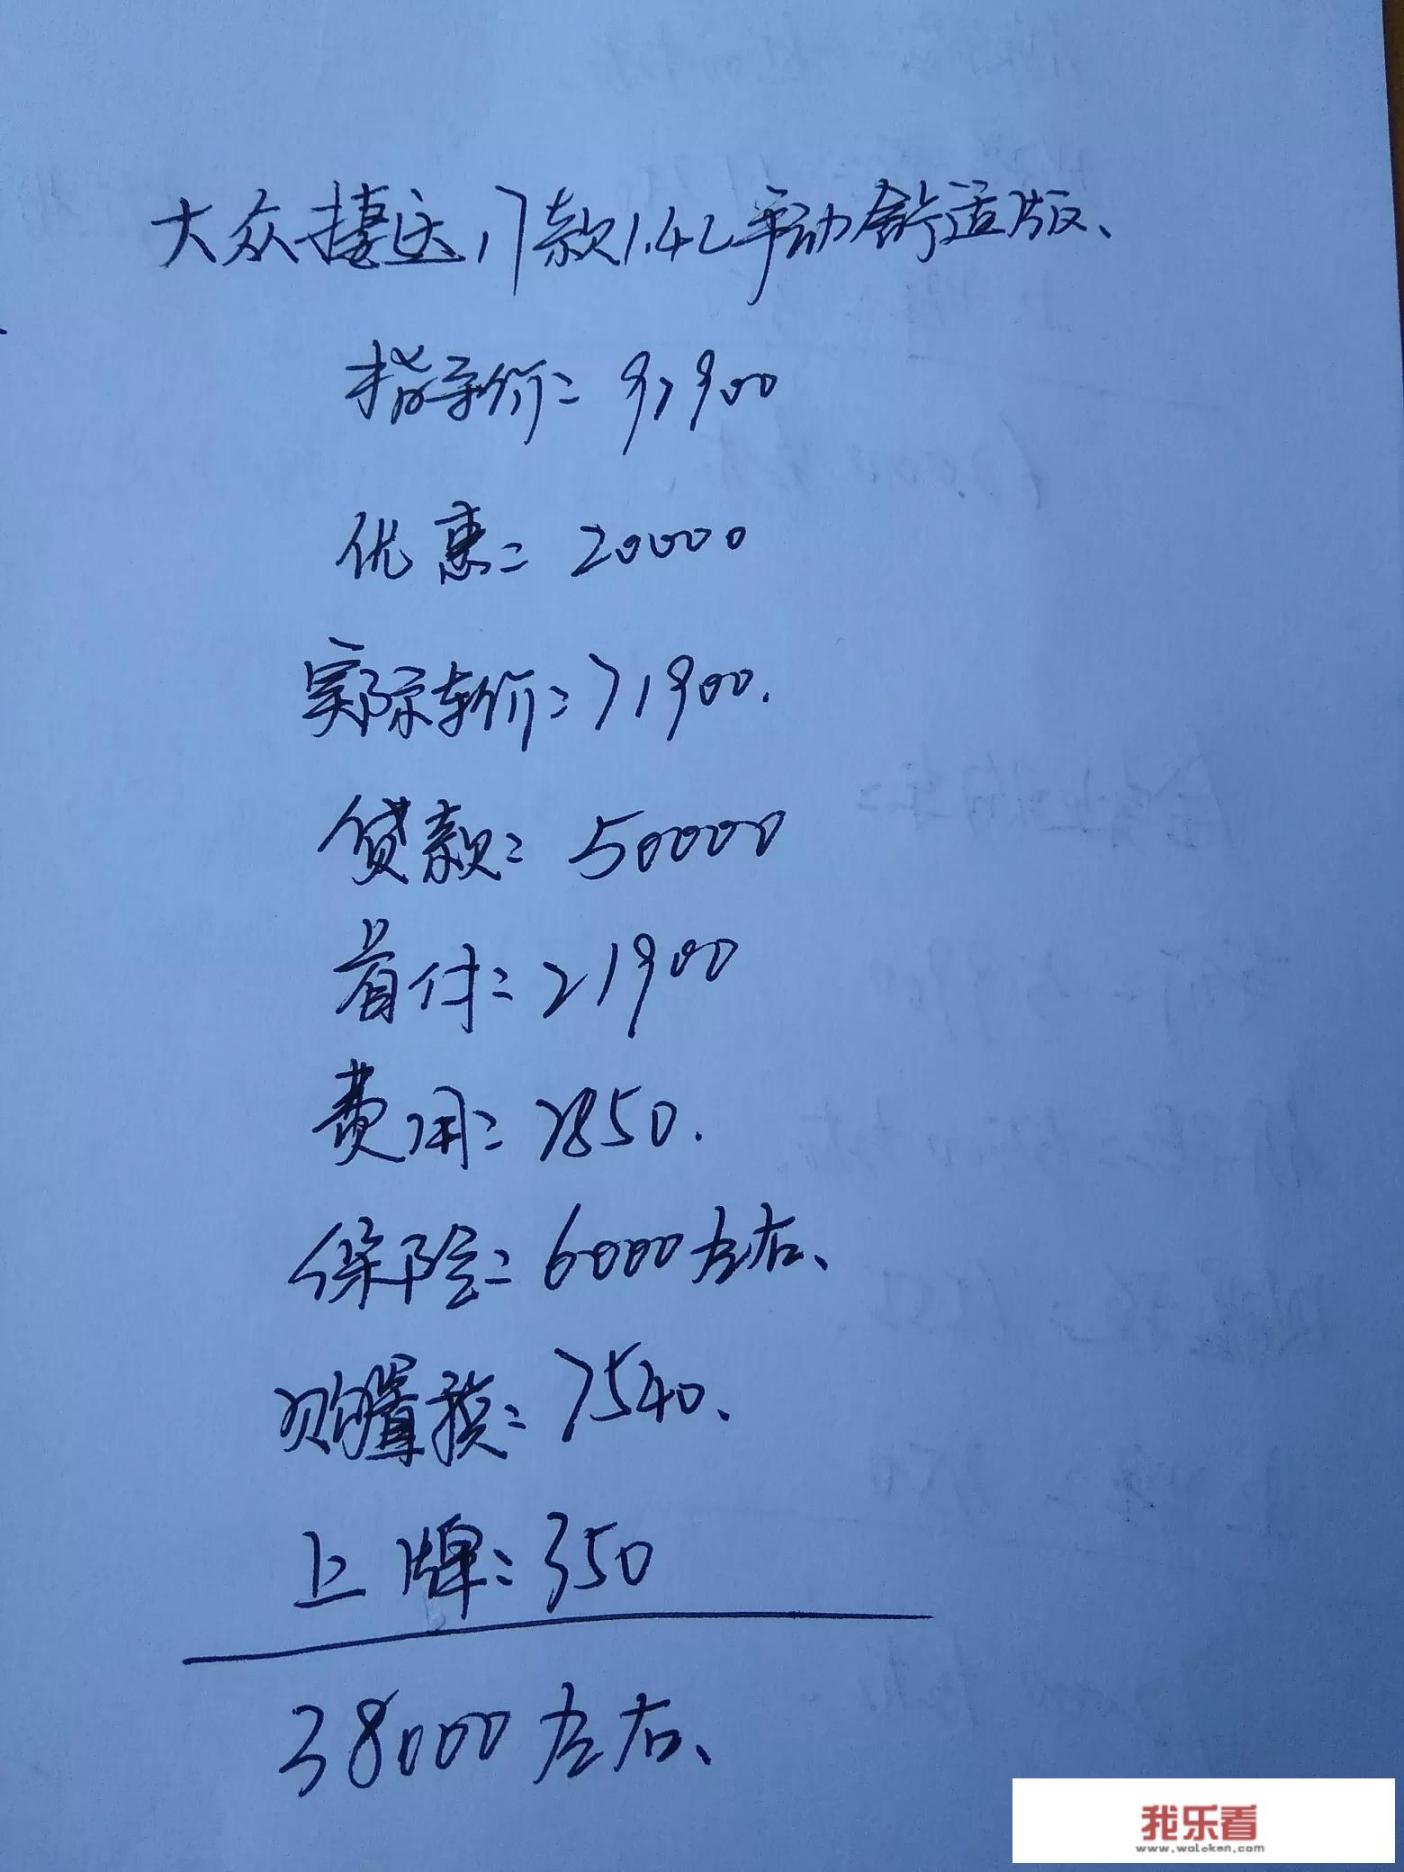 大众捷达17款1.4L手动舒适版、
指导价=91900
优惠=20000
实际车价=71900.
贷款=50000
首付=21900
费用=2850.
保险=6000左右、
购置税=7540、
上牌=350
38000左右、
我乐看
www.woleken.com